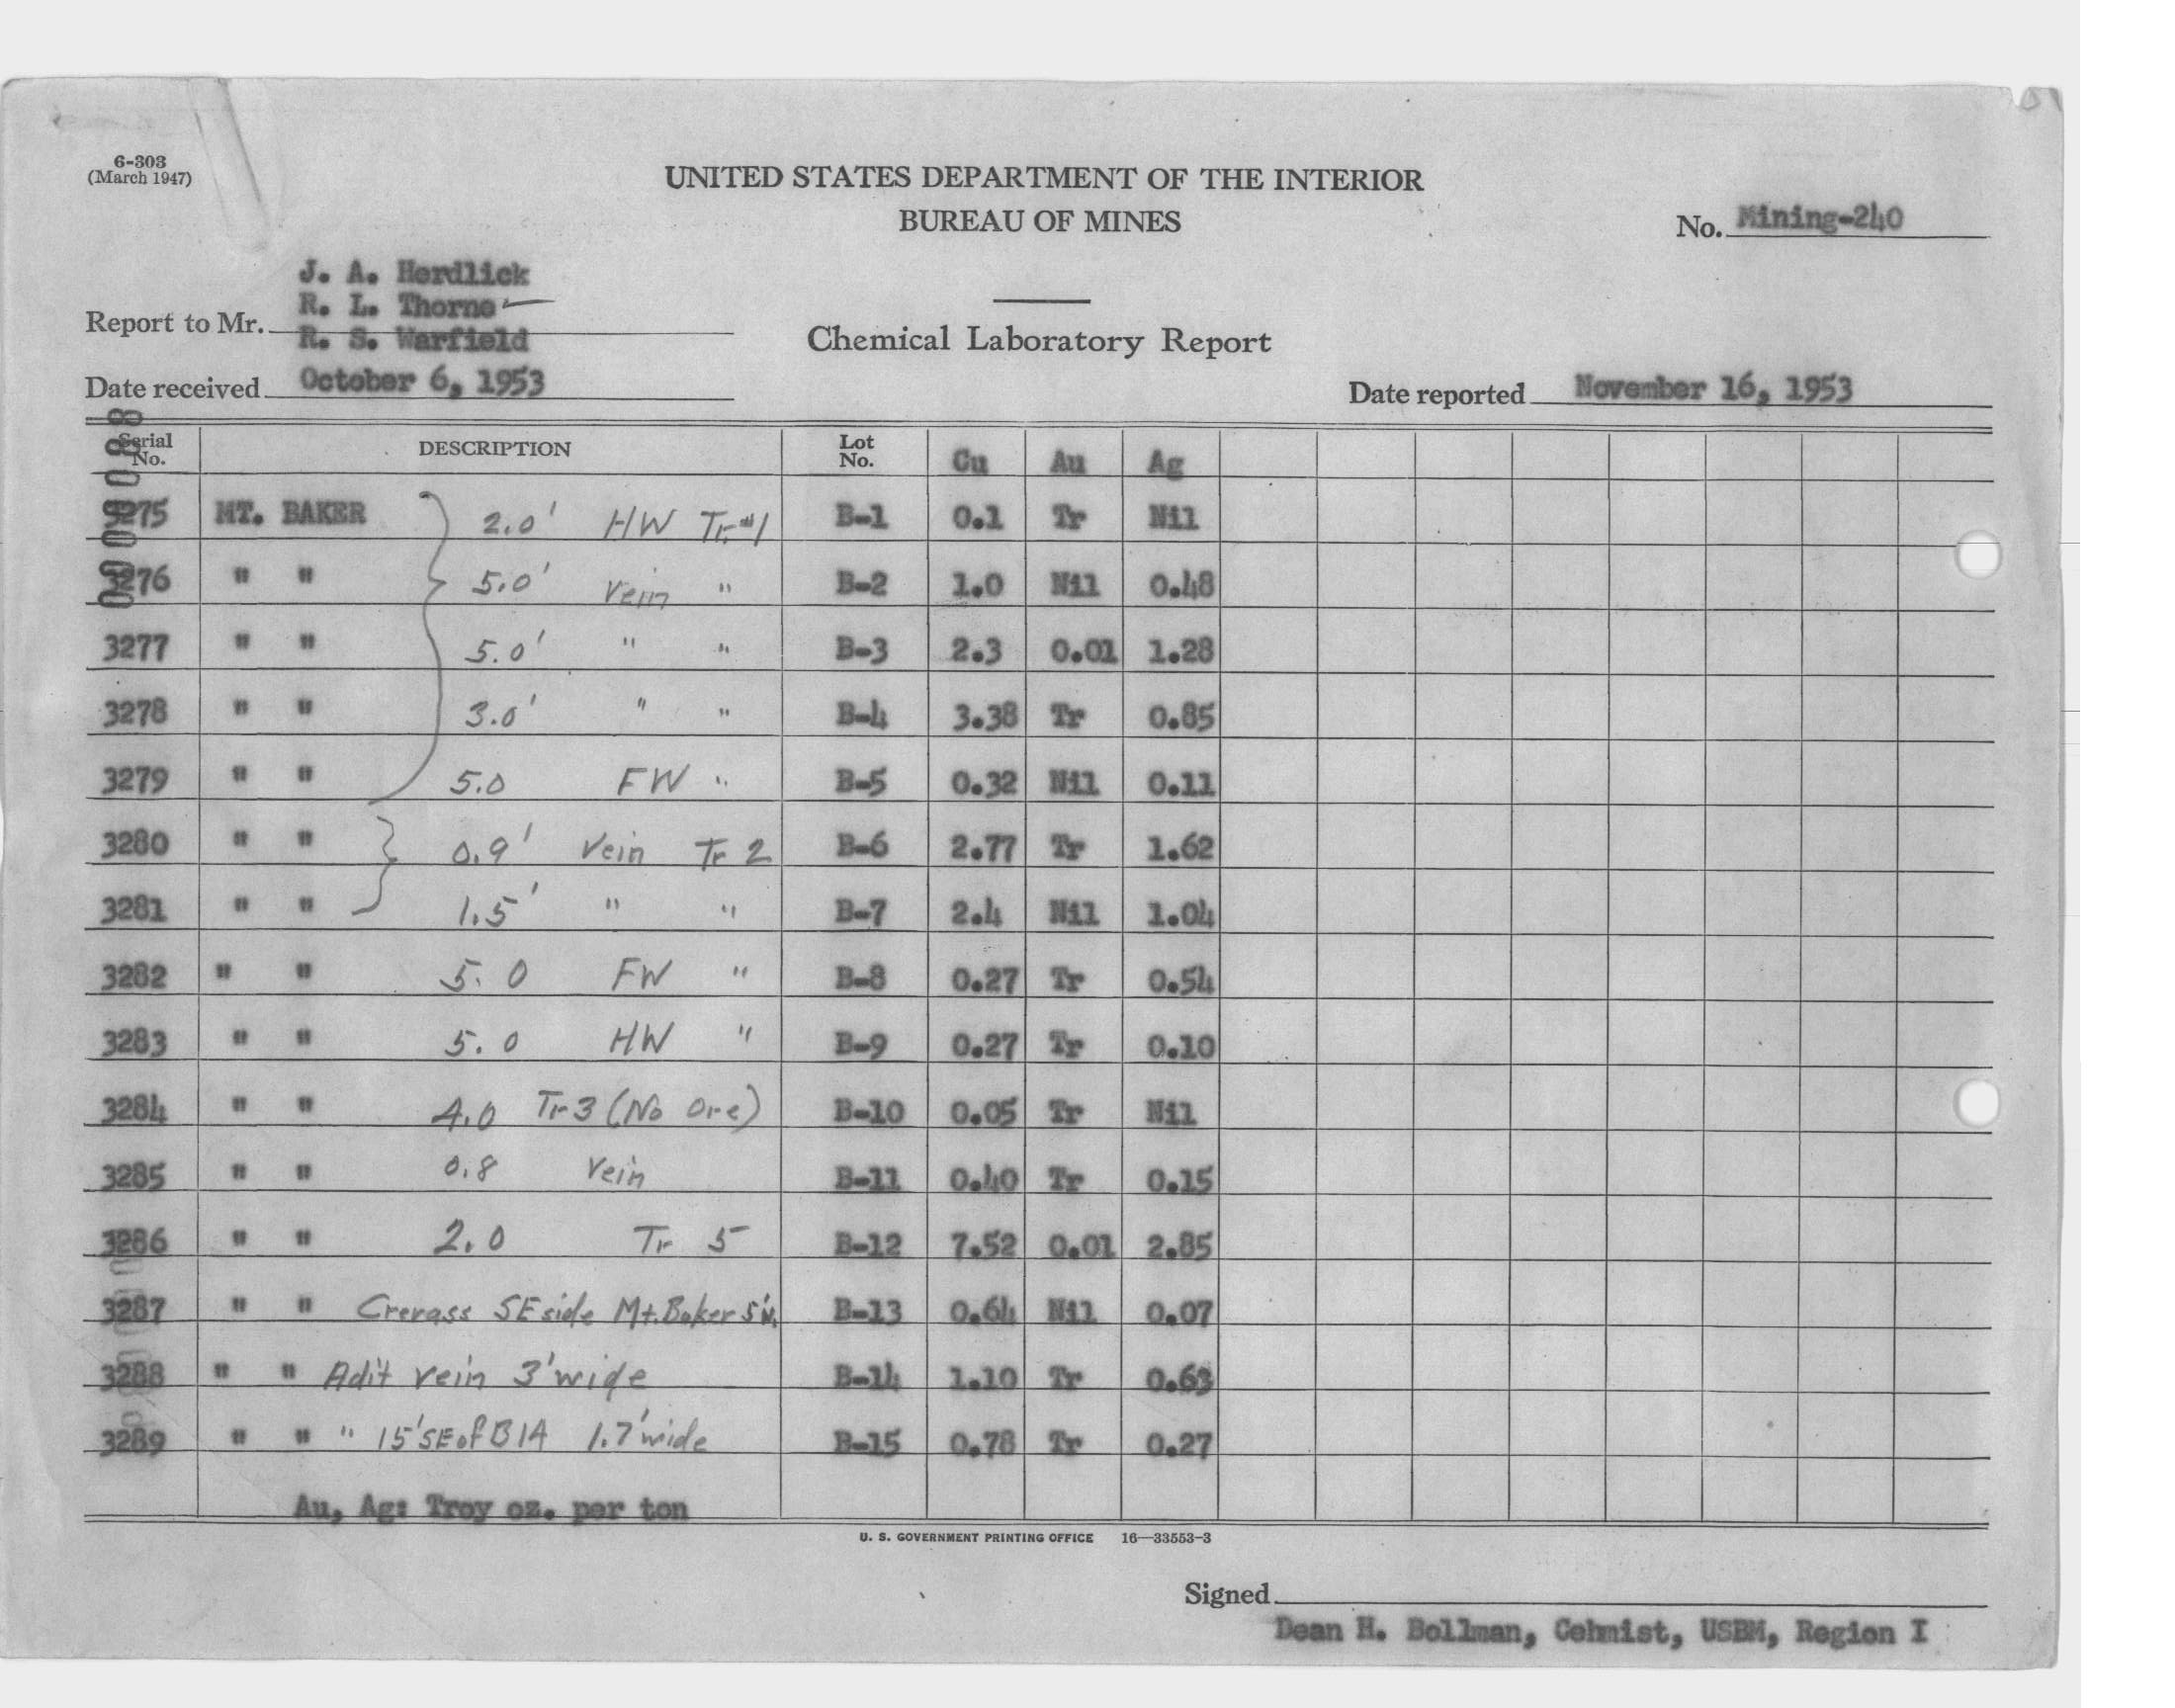 6-303
(March 1947)
UNITED STATES DEPARTMENT OF THE INTERIOR
BUREAU OF MINES
No. Mining-240
J. A. Herdlick
R. L. Thorne
Report to Mr.
R. S. Warfield
Chemical Laboratory Report
Date received October 6, 1953
Date reported November 16, 1953
Serial No. DESCRIPTION Lot No. Cu Au Ag
3275 MT. BAKER 2.0' HW Tr. #1 B-1 0.1 Tr Nil
3276 " " 5.0' Vein " B-2 1.0 Nil 0.48
3277 " " 5.0' " " B-3 2.3 0.01 1.28
3278 " " 3.0' " " B-4 3.38 Tr 0.85
3279 " " 5.0 FW " B-5 0.32 Nil 0.11
3280 " " 0.9' Vein Tr 2 B-6 2.77 Tr 1.62
3281 " " 1.5' " " B-7 2.4 Nil 1.04
3282 " " 5.0 FW " B-8 0.27 Tr 0.54
3283 " " 5.0 HW " B-9 0.27 Tr 0.10
3284 " " 4.0 Tr 3 (No Ore) B-10 0.05 Tr Nil
3285 " " 0.8 Vein B-11 0.40 Tr 0.15
3286 " " 2.0 Tr 5 B-12 7.52 0.01 2.85
3287 " " Crevass SE side Mt. Baker 5' B-13 0.64 Nil 0.07
3288 " " Adit vein 3' wide B-14 1.10 Tr 0.63
3289 " " " 15' SE of B14 1.7' wide B-15 0.78 Tr 0.27
Au, Ag: Troy oz. per ton
U. S. GOVERNMENT PRINTING OFFICE 16—33553-3
Signed
Dean H. Bollman, Cehmist, USBM, Region I